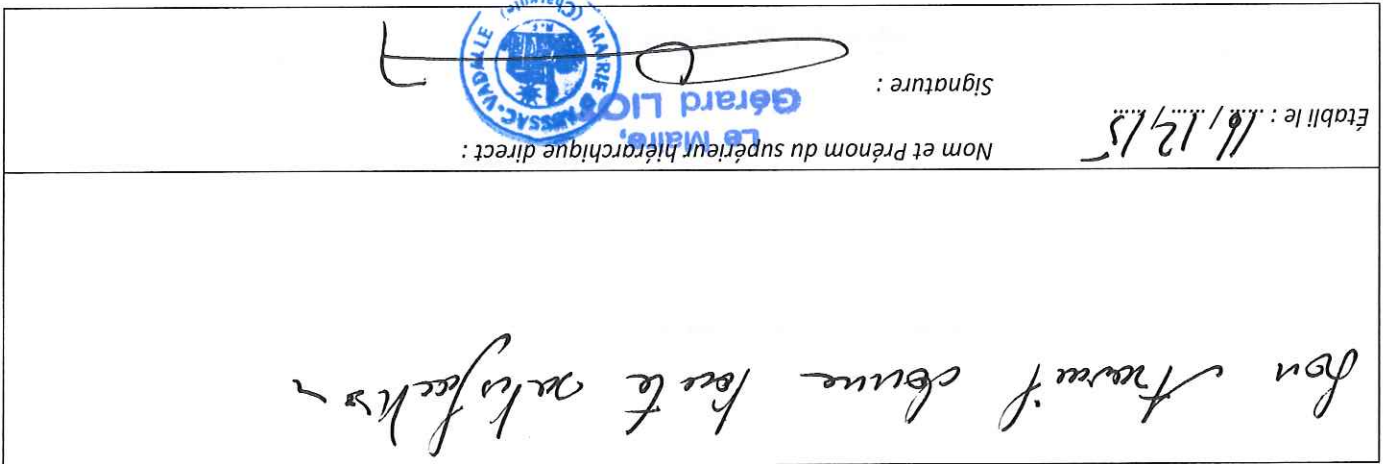 Son travail donne toute satisfaction
Établi le : 16/12/15
Nom et Prénom du supérieur hiérarchique direct :
Le Maire,
Gérard
Signature :
MAIRIE VADALLE
(Charente)